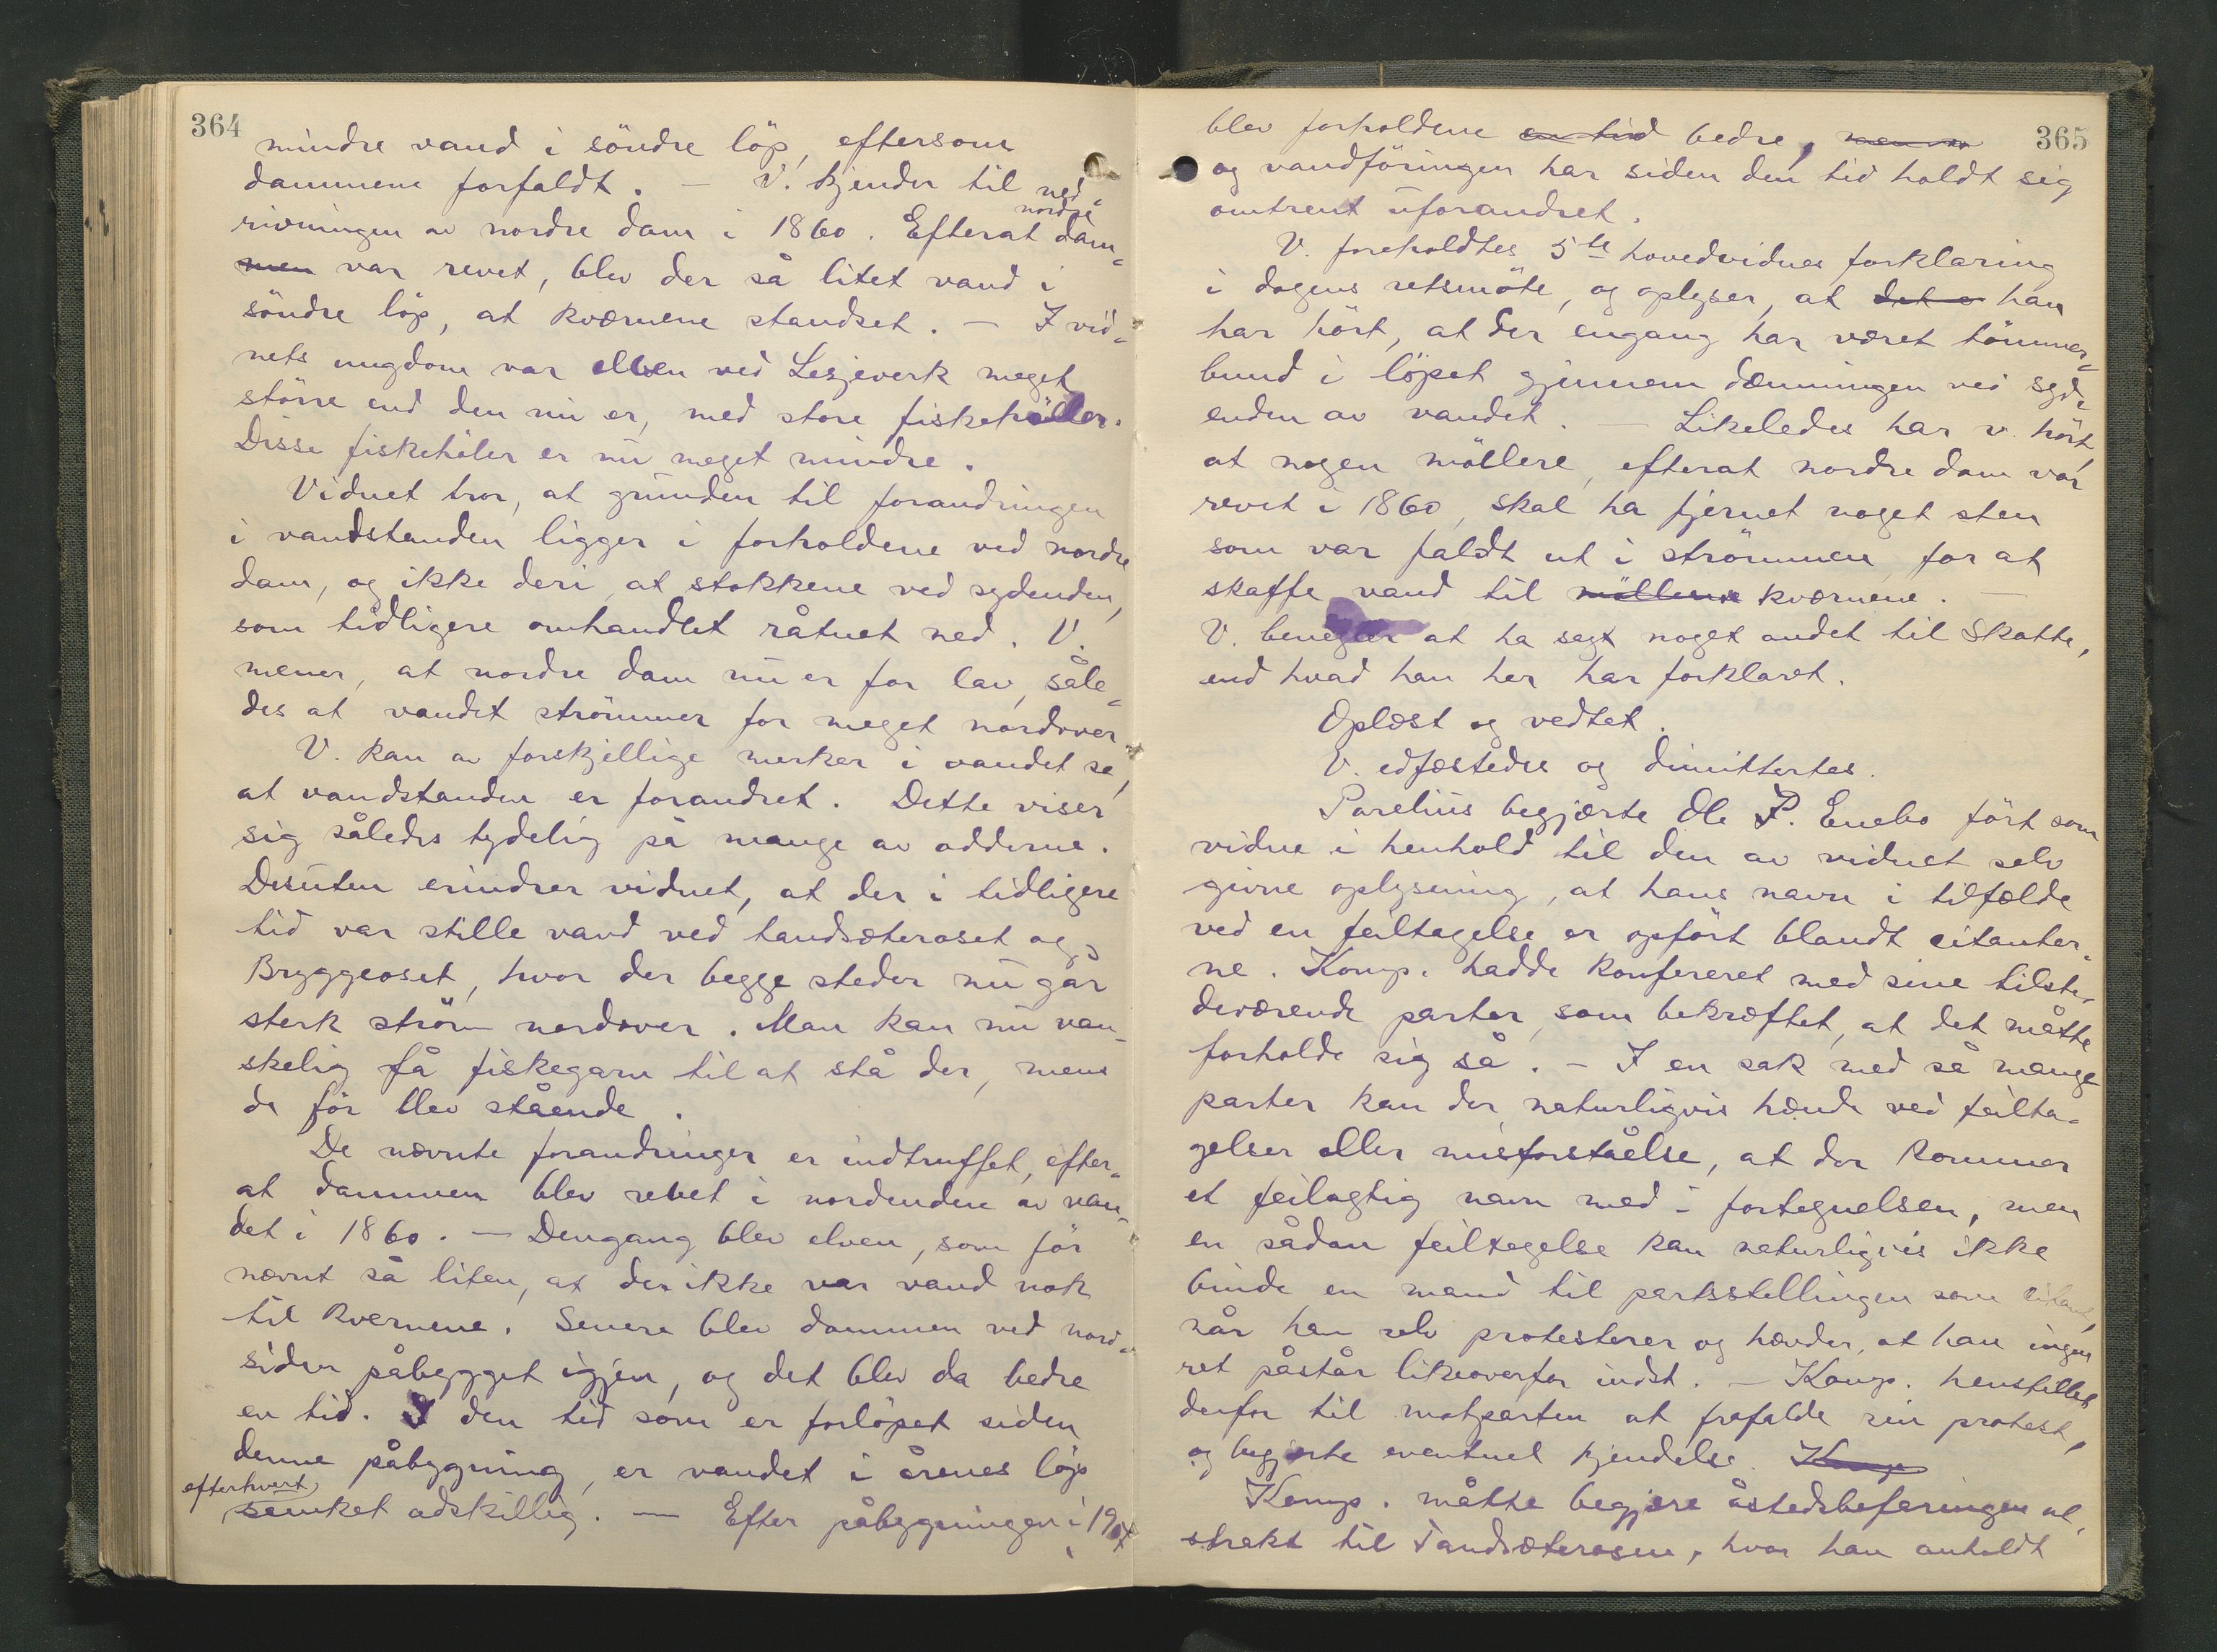 364
mindre vand i söndre löp, eftersom
dammene forfaldt. — V. kjender til ned-
rivningen av nordre dam i 1860. Efterat nordre dam-
men var revet, blev der så litet vand i
söndre löp, at kværnene standset. — I vid-
nets ungdom var elven ved Lesjeverk meget
större end den nu er, med store fiskehöller.
Disse fiskehöler er nu meget mindre.
Vidnet tror, at grunden til forandringen
i vandstanden ligger i forholdene ved nordre
dam, og ikke deri, at stokkene ved sydenden,
som tidligere omhandlet råtnet ned. V.
mener, at nordre dam nu er for lav, såle-
des at vandet strömmer for meget nordover.
V. kan av forskjellige merker i vandet se,
at vandstanden er forandret. Dette viser
sig således tydelig på mange av odderne.
Desuten erindrer vidnet, at der i tidligere
tid var stille vand ved tandsæteroset og
Bryggeoset, hvor der begge steder nu går
sterk ström nordover. Man kan nu van-
skelig få fiskegarn til at stå der, mens
de för blev stående.
De nævnte forandringer er indtruffet, efter-
at dammen blev revet i nordenden av van-
det i 1860. — Dengang blev elven, som för
nævnt så liten, at der ikke var vand nok
til kvernene. Senere blev dammen ved nord-
siden påbygget igjen, og det blev da bedre
en tid. I den tid som er forlöpet siden
denne påbygning, er vandet i årenes löp
efterhvert
senket adskillig. — Efter påbygningen i 190
365
blev forholdene en tid bedre,
og vandföringen har siden den tid holdt sig
omtrent uforandret.
V. foreholdtes 5te hovedvidnes forklaring
i dagens retsmöte, og oplyser, at det e han
har hört, at der engang har været tömmer-
bund i löpet gjennem dæmningen ved syd-
enden av vandet. — Likeledes har v. hört,
at nogen möllere, efterat nordre dam var
revet i 1860, skal ha fjernet noget sten
som var faldt ut i strömmen, for at
skaffe vand til möllene kværnene. —
V. benegter at ha sagt noget andet til Skotte,
end hvad han her har forklart.
Oplæst og vedtat.
V. edfæstedes og dimittertes.
Parelius begjærte Ole P. Enebo fört som
vidne i henhold til den av vidnet selv
givne oplysning, at hans navn i tilfælde
ved en feiltagelse er opfört blandt citanter-
ne. Komp. hadde konfereret med sine tilste-
deværende parter, som bekræftet, at det måtte
forholde sig så. — I en sak med så mange
parter kan der naturligvis hænde ved feilta-
gelser eller misforståelse, at der kommer
et feilagtig navn med i fortegnelsen, men
en sådan feiltagelse kan naturligvis ikke
binde en mand til partsstillingen som citant,
når han selv protesterer og hævder, at han ingen
ret påstår likeoverfor indst. — Komp. henstillet
derfor til motparten at frafalde sin protest,
og begjærte eventuel kjendelse. Komp
Komp. måtte begjære åstedsbefaringen ut-
strakt til Tandsæterosen, hvor han anholdt